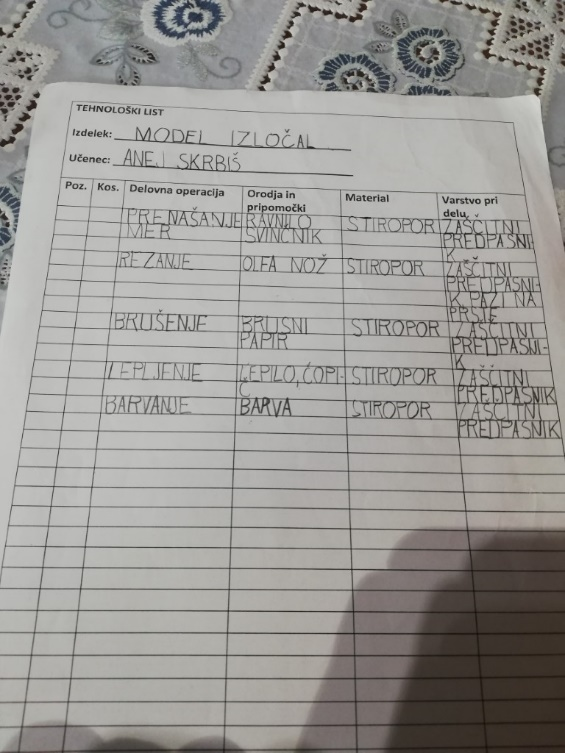 TEHNOLOŠKI LIST
Izdelek: MODEL IZLOČAL
Učenec: ANEJ SKRBIŠ
Poz. Kos. Delovna operacija Orodja in pripomočki Material Varstvo pri delu
PRENAŠANJE RAVNILO STIROPOR ZAŠČITNI
MER SVINČNIK PREDPASNI-
K
REZANJE OLFA NOŽ STIROPOR ZAŠČITNI
PREDPASNI-
K, PAZI NA
PRSTE
BRUŠENJE BRUSNI STIROPOR ZAŠČITNI
PAPIR PREDPASNI-
K
LEPLJENJE LEPILO, ČOPI- STIROPOR ZAŠČITNI
Č PREDPASNIK
BARVANJE BARVA STIROPOR ZAŠČITNI
PREDPASNIK